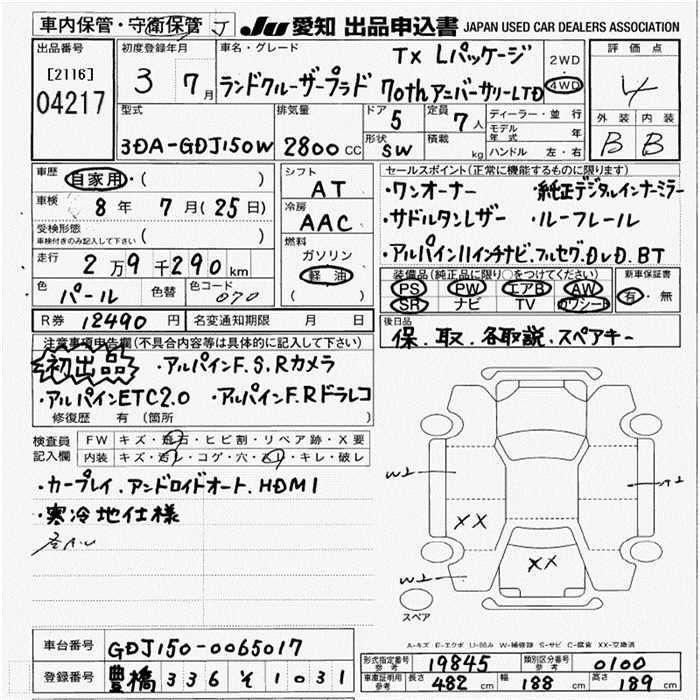 車内保管・守衛保管 J JU 愛知 出品申込書 JAPAN USED CAR DEALERS ASSOCIATION
出品番号 [2116] 04217
初度登録年月 3 7月
車名・グレード TX Lパッケージ
ランドクルーザープラド 70thアニバーサリーLTD
2WD
4WD
評価点 4
外装 内装
B B
型式 3DA-GDJ150W
排気量 2800CC
ドア 5
定員 7人
形状 SW
積載 kg
ディーラー・並行
モデル年式 年
ハンドル 左・右
車歴 自家用・( )
車検 8年 7月(25日)
受検形態 車検付きのみ記入して下さい ( )
走行 2万9千290km
色 パール 色替 色コード 070
シフト AT
冷房 AAC
燃料 ガソリン
軽油
( )
セールスポイント(正常に機能するものに限ります)
・ワンオーナー ・純正デジタルインナーミラー
・サドルタンレザー ・ルーフレール
・アルパイン11インチナビ.フルセグ.DVD.BT
装備品(純正品に限り○をつけてください)
PS PW エアB AW
SR ナビ TV カワシート
新車保証書
有・無
R券 12490円 名変通知期限 月 日
後日品
保.取.各取説.スペアキー
注意事項申告欄(不具合内容等は具体的に記入して下さい)
初出品 ・アルパインF.S.Rカメラ
・アルパインETC2.0 ・アルパインF.Rドラレコ
修復歴 有(箇所 )
検査員記入欄
FW キズ・飛石・ヒビ割・リペア跡・X要
内装 キズ・汚れ・コゲ・穴・スリ・キレ・破レ
・カープレイ.アンドロイドオート.HDMI
・寒冷地仕様
W2
XX
XX
W2
スペア
A-キズ E-エクボ U-凹み W-補修跡 S-サビ C-腐食 XX-交換済
車台番号 GDJ150-0065017
登録番号 豊橋 336 そ 1031
形式指定番号 参考 19845 類別区分番号 参考 0100
車庫証明用 参考 長さ 482cm 幅 188cm 高さ 189cm